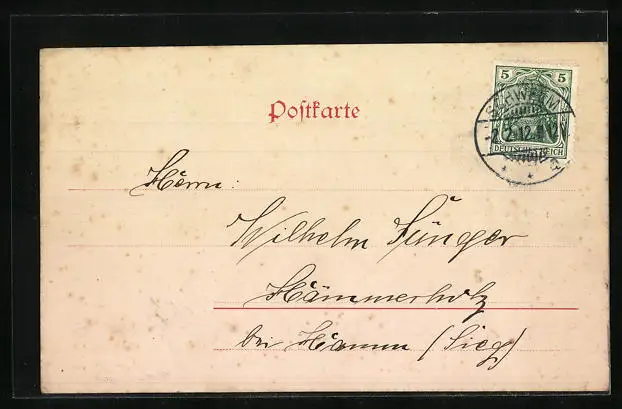 5 5
SCHWELM
2.2.12.
DEUTSCHES REICH
Postkarte
Herrn:
Wilhelm Sünger
Hämmerholz
bei Hamm (Sieg)